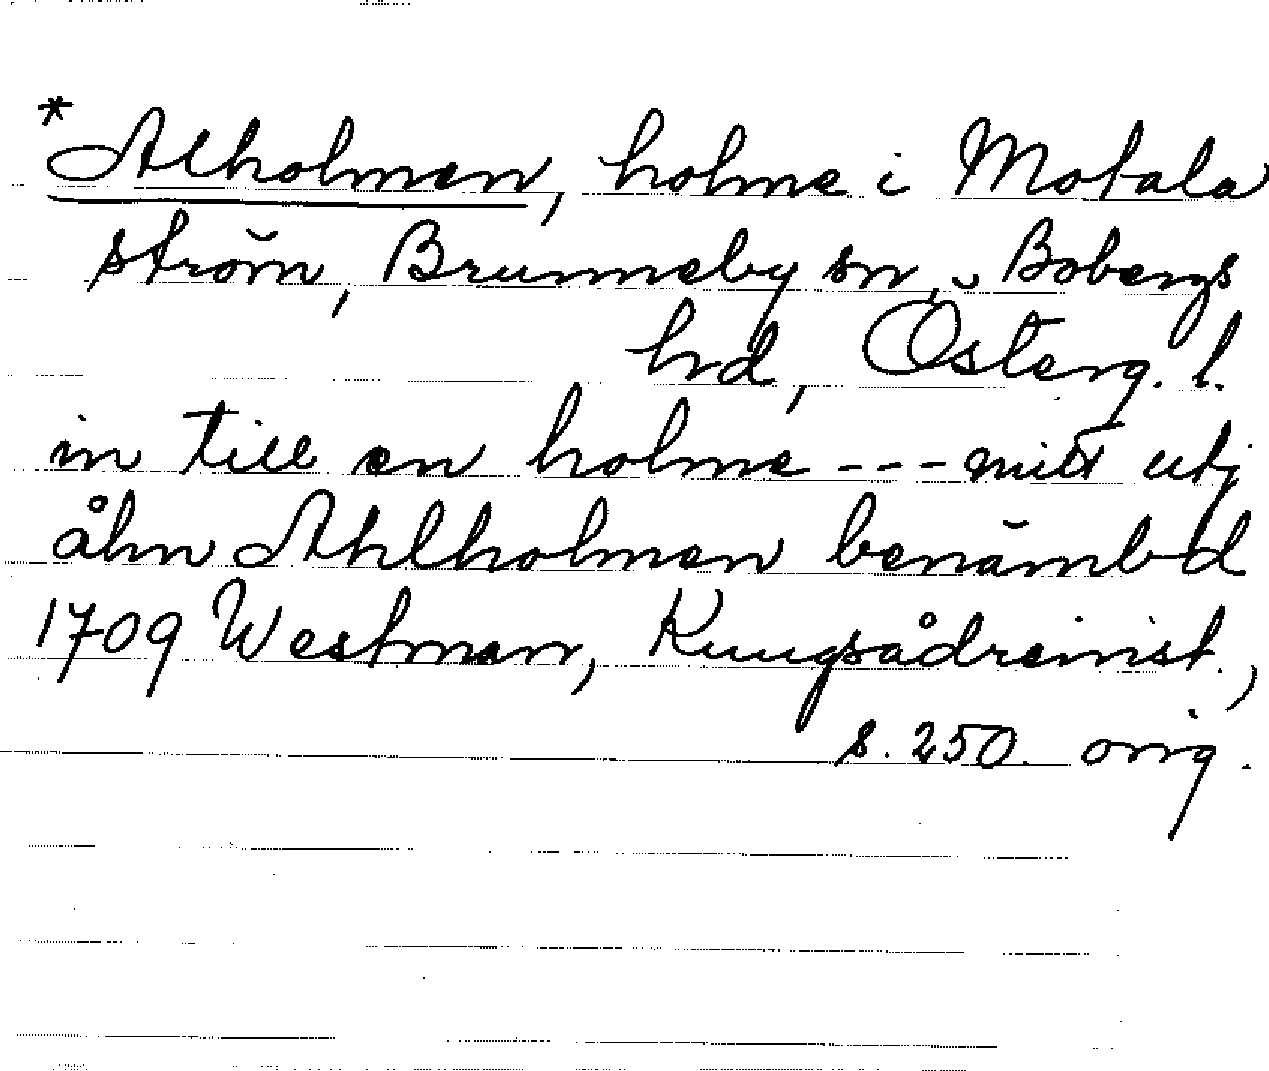 *Alholmen, holme i Motala
ström, Brunneby sn, Bobergs
hd, Österg. l.
in till en holme --- mitt utj
åhn Ahlholmen benämbd
1709 Westman, Kungsådreinst.,
s. 250. orig.